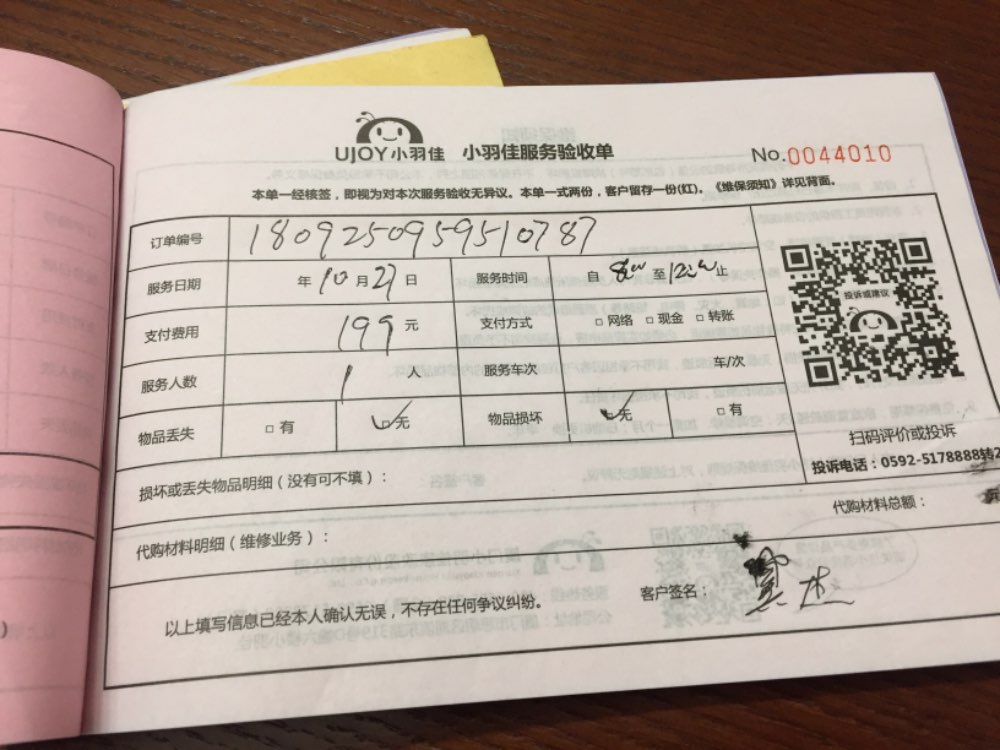 UJOY小羽佳 小羽佳服务验收单 No.0044010
本单一经核签，即视为对本次服务验收无异议。本单一式两份，客户留存一份(红)。《维保须知》详见背面。
订单编号 1809250959510787
服务日期 年 10 月 27 日 服务时间 自 至 止
支付费用 199 元 支付方式 □ 网络 □ 现金 □ 转账
服务人数 1 人 服务车次 车/次
物品丢失 □ 有 无 物品损坏 无 □ 有
投诉或建议
扫码评价或投诉
投诉电话：0592-5178888转2
损坏或丢失物品明细（没有可不填）：
代购材料明细（维修业务）： 代购材料总额：
以上填写信息已经本人确认无误，不存在任何争议纠纷。 客户签名：